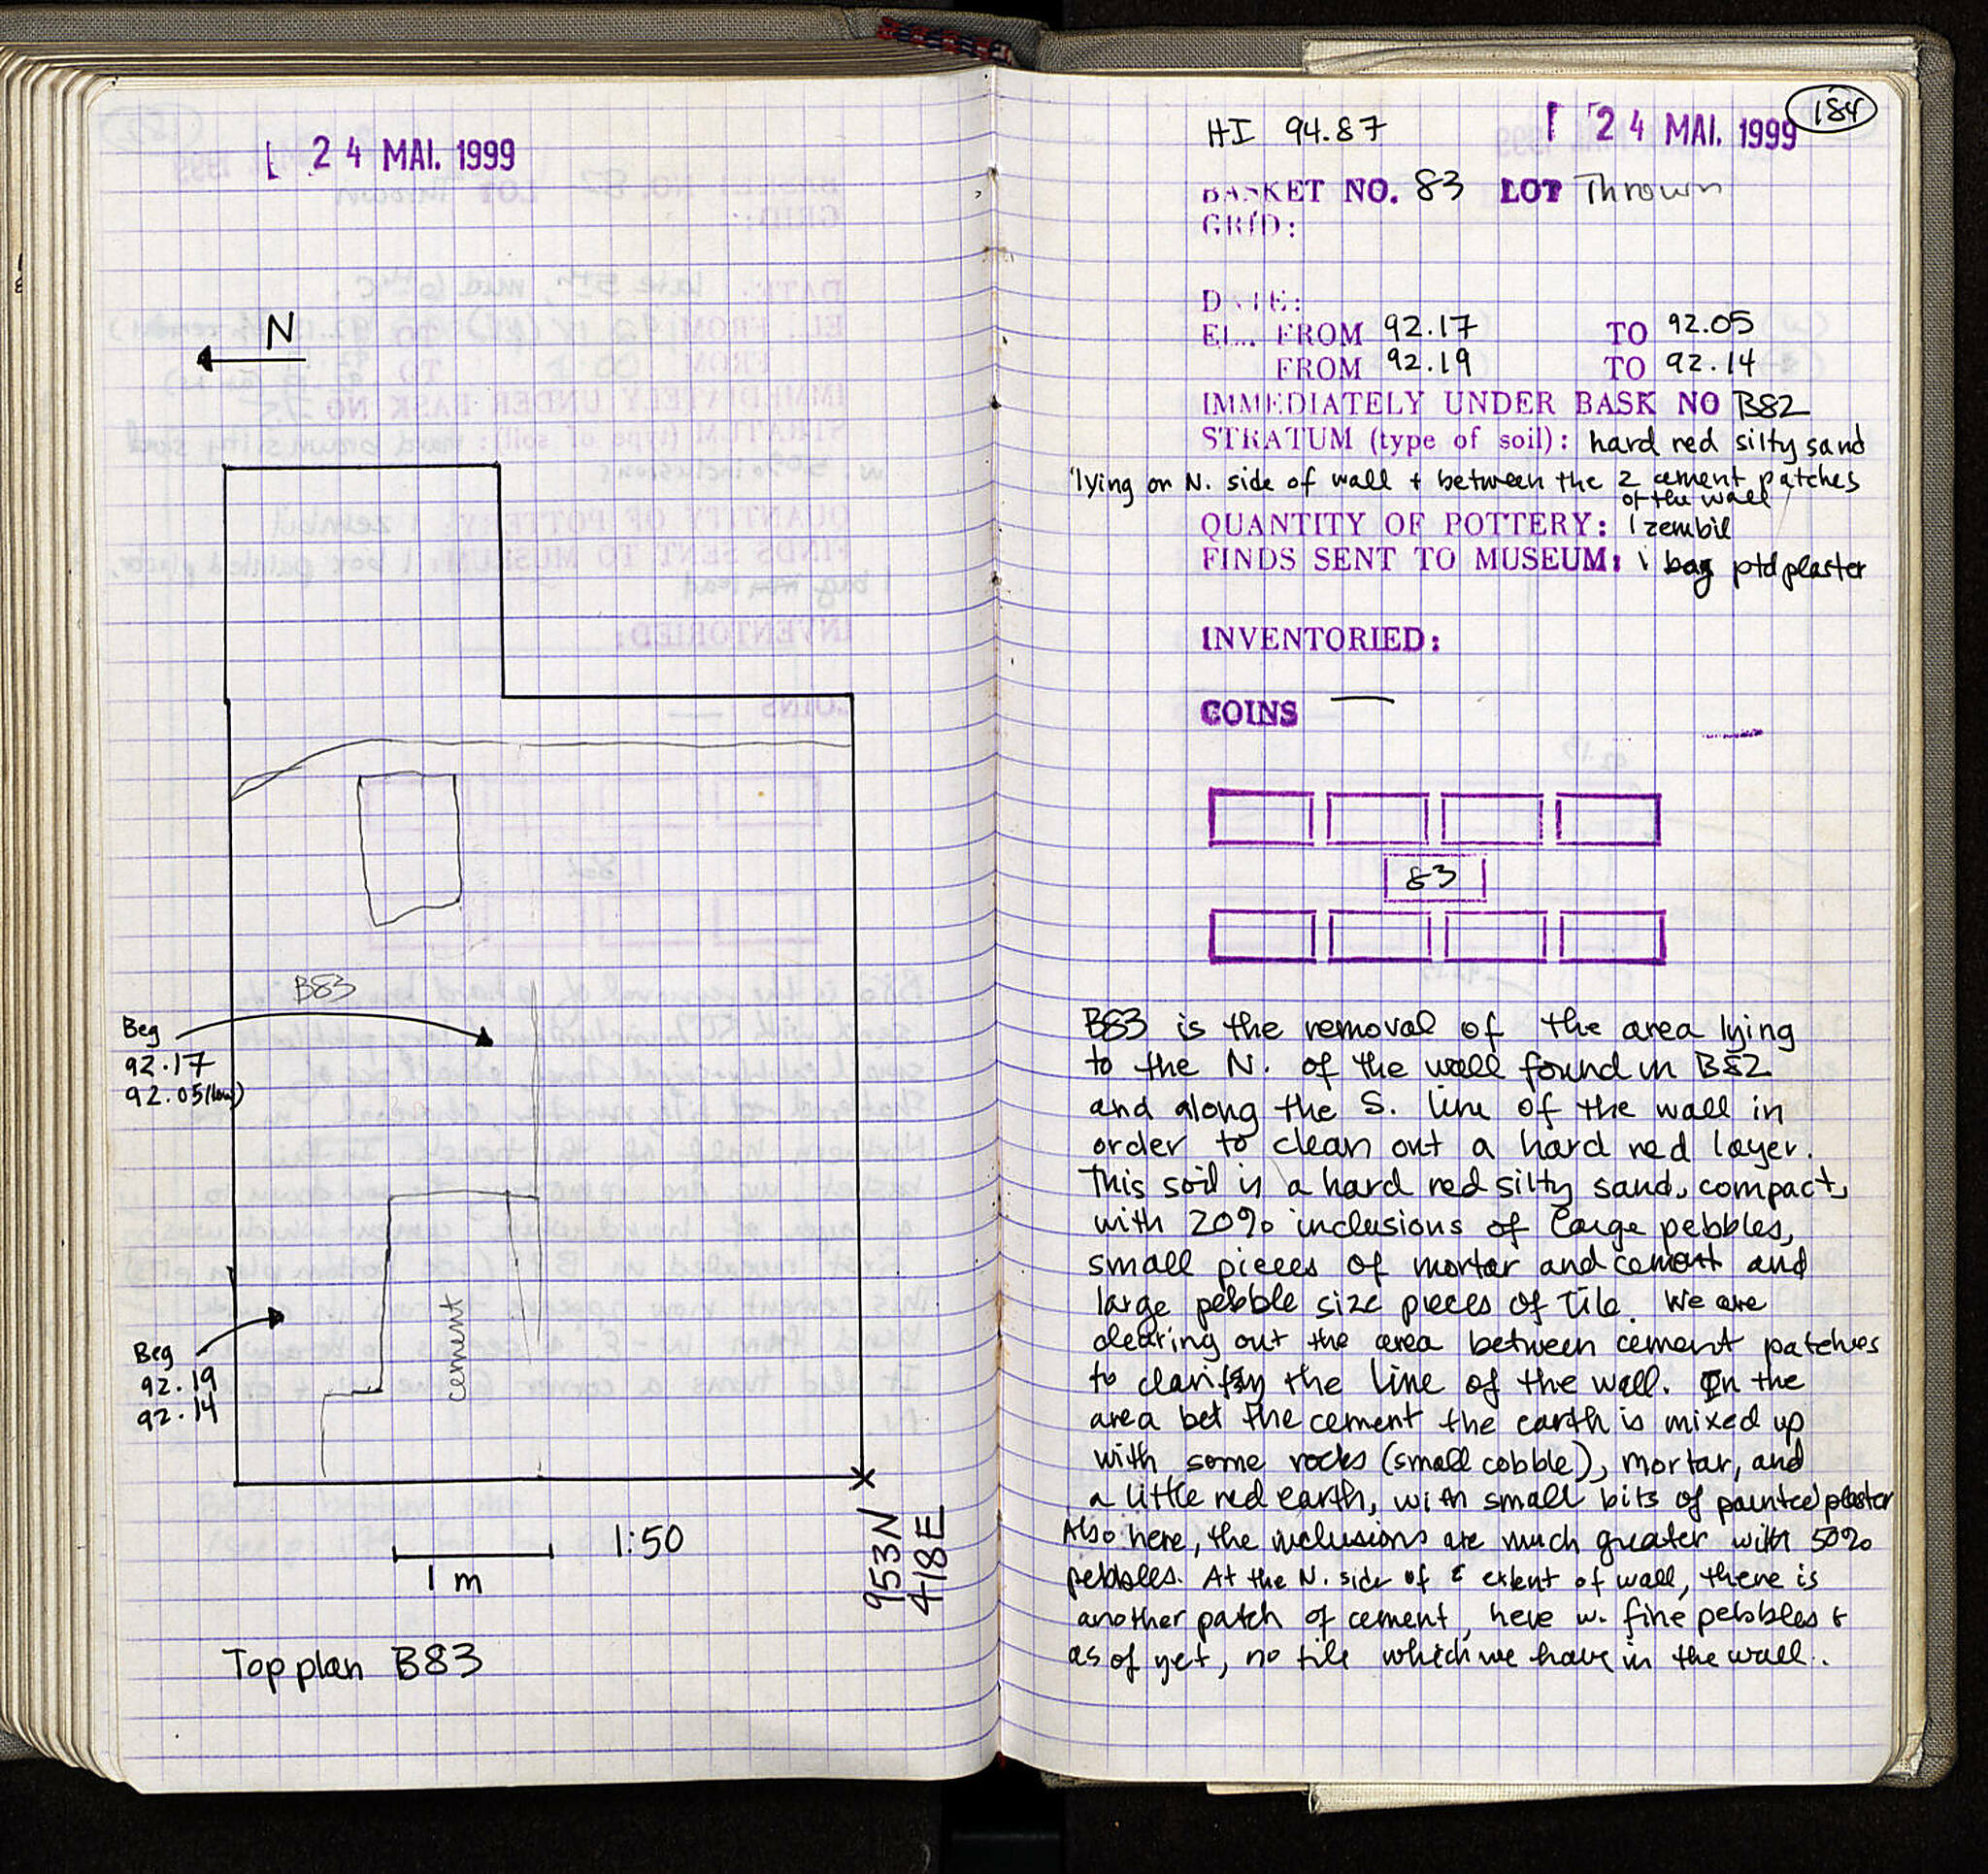 24 MAI. 1999
N
B83
Beg
92.17
92.05 (low)
Beg
92.19
92.14
cement
1:50
1 m
953N
418E
Top plan B83
184
HI 94.87
24 MAI. 1999
BASKET NO. 83 LOT Thrown
GRID:
DATE:
EL.. FROM 92.17 TO 92.05
FROM 92.19 TO 92.14
IMMEDIATELY UNDER BASK NO B82
STRATUM (type of soil): hard red silty sand
lying on N. side of wall + between the 2 cement patches
of the wall
QUANTITY OF POTTERY: 1 zembil
FINDS SENT TO MUSEUM: 1 bag ptd plaster
INVENTORIED:
COINS —
83
B83 is the removal of the area lying
to the N. of the wall found in B82
and along the S. line of the wall in
order to clean out a hard red layer.
This soil is a hard red silty sand, compact,
with 20% inclusions of large pebbles,
small pieces of mortar and cement and
large pebble size pieces of tile. We are
clearing out the area between cement patches
to clarify the line of the wall. In the
area bet the cement the earth is mixed up
with some rocks (small cobble), mortar, and
a little red earth, with small bits of painted plaster
Also here, the inclusions are much greater with 50%
pebbles. At the N. side of E extent of wall, there is
another patch of cement, here w. fine pebbles &
as of yet, no tile which we have in the wall.